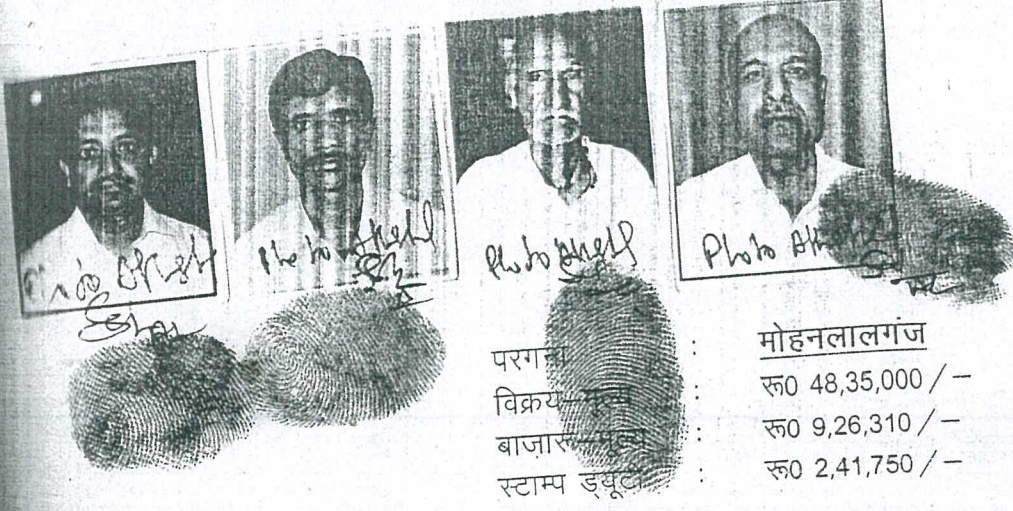 Photo Attested
Photo Attested
Photo Attested
Photo
परगना : मोहनलालगंज
विक्रय-मूल्य : रू0 48,35,000/-
बाजारू-मूल्य : रू0 9,26,310/-
स्टाम्प ड्यूटी : रू0 2,41,750/-